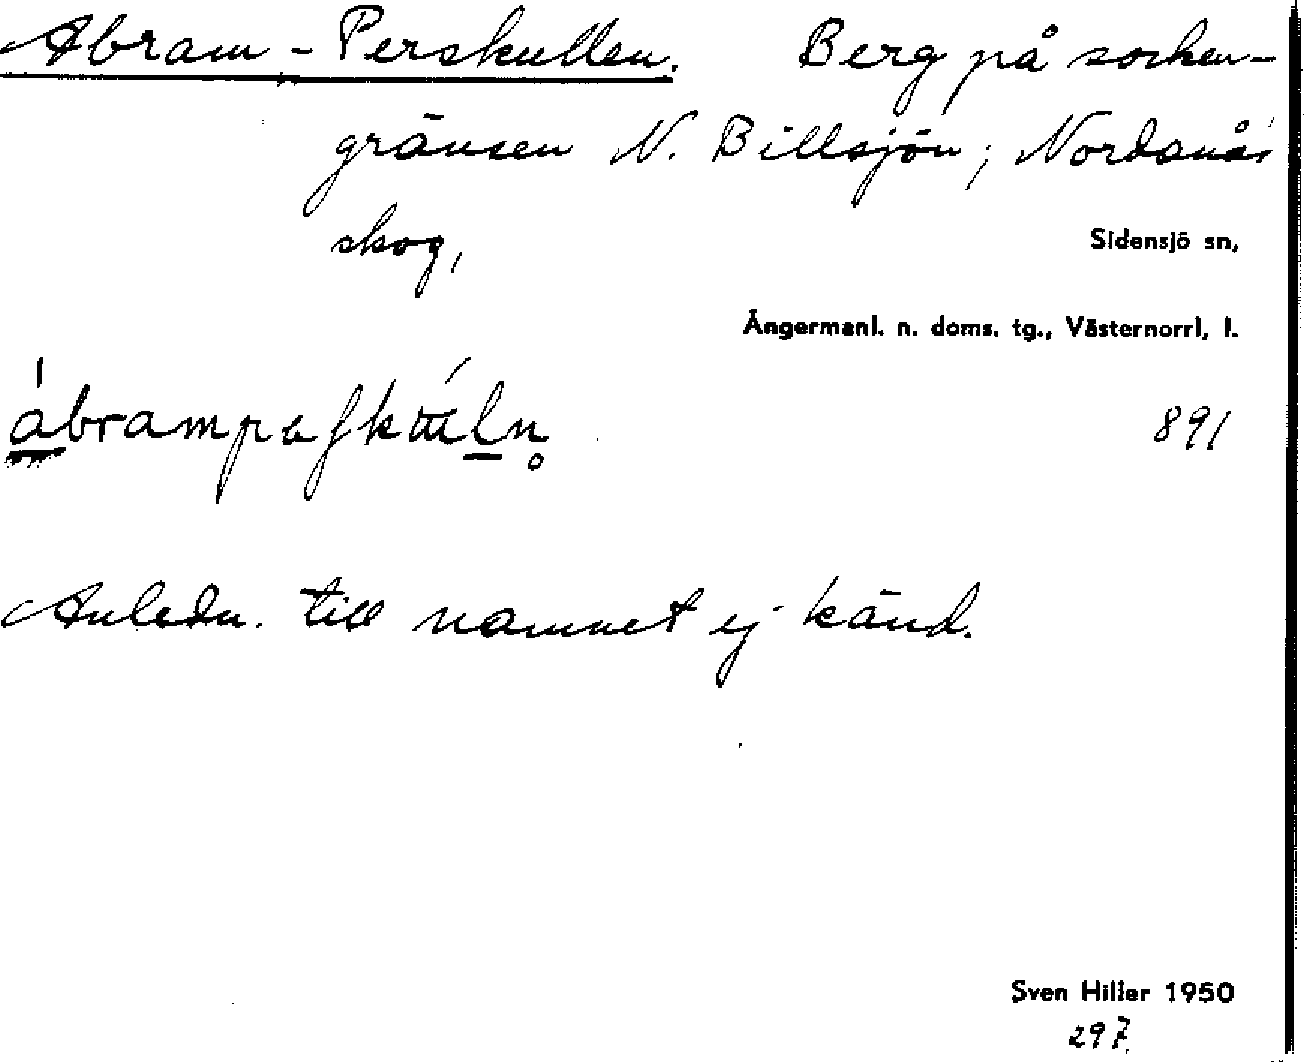 Abram-Perskullen. Berg på socken-
gränsen N. Billsjön; Nordsnås
skog,
Sidensjö sn,
Ångermanl. n. doms. tg., Västernorrl, l.
891
Anledn. till namnet ej känd.
Sven Hiller 1950
297.